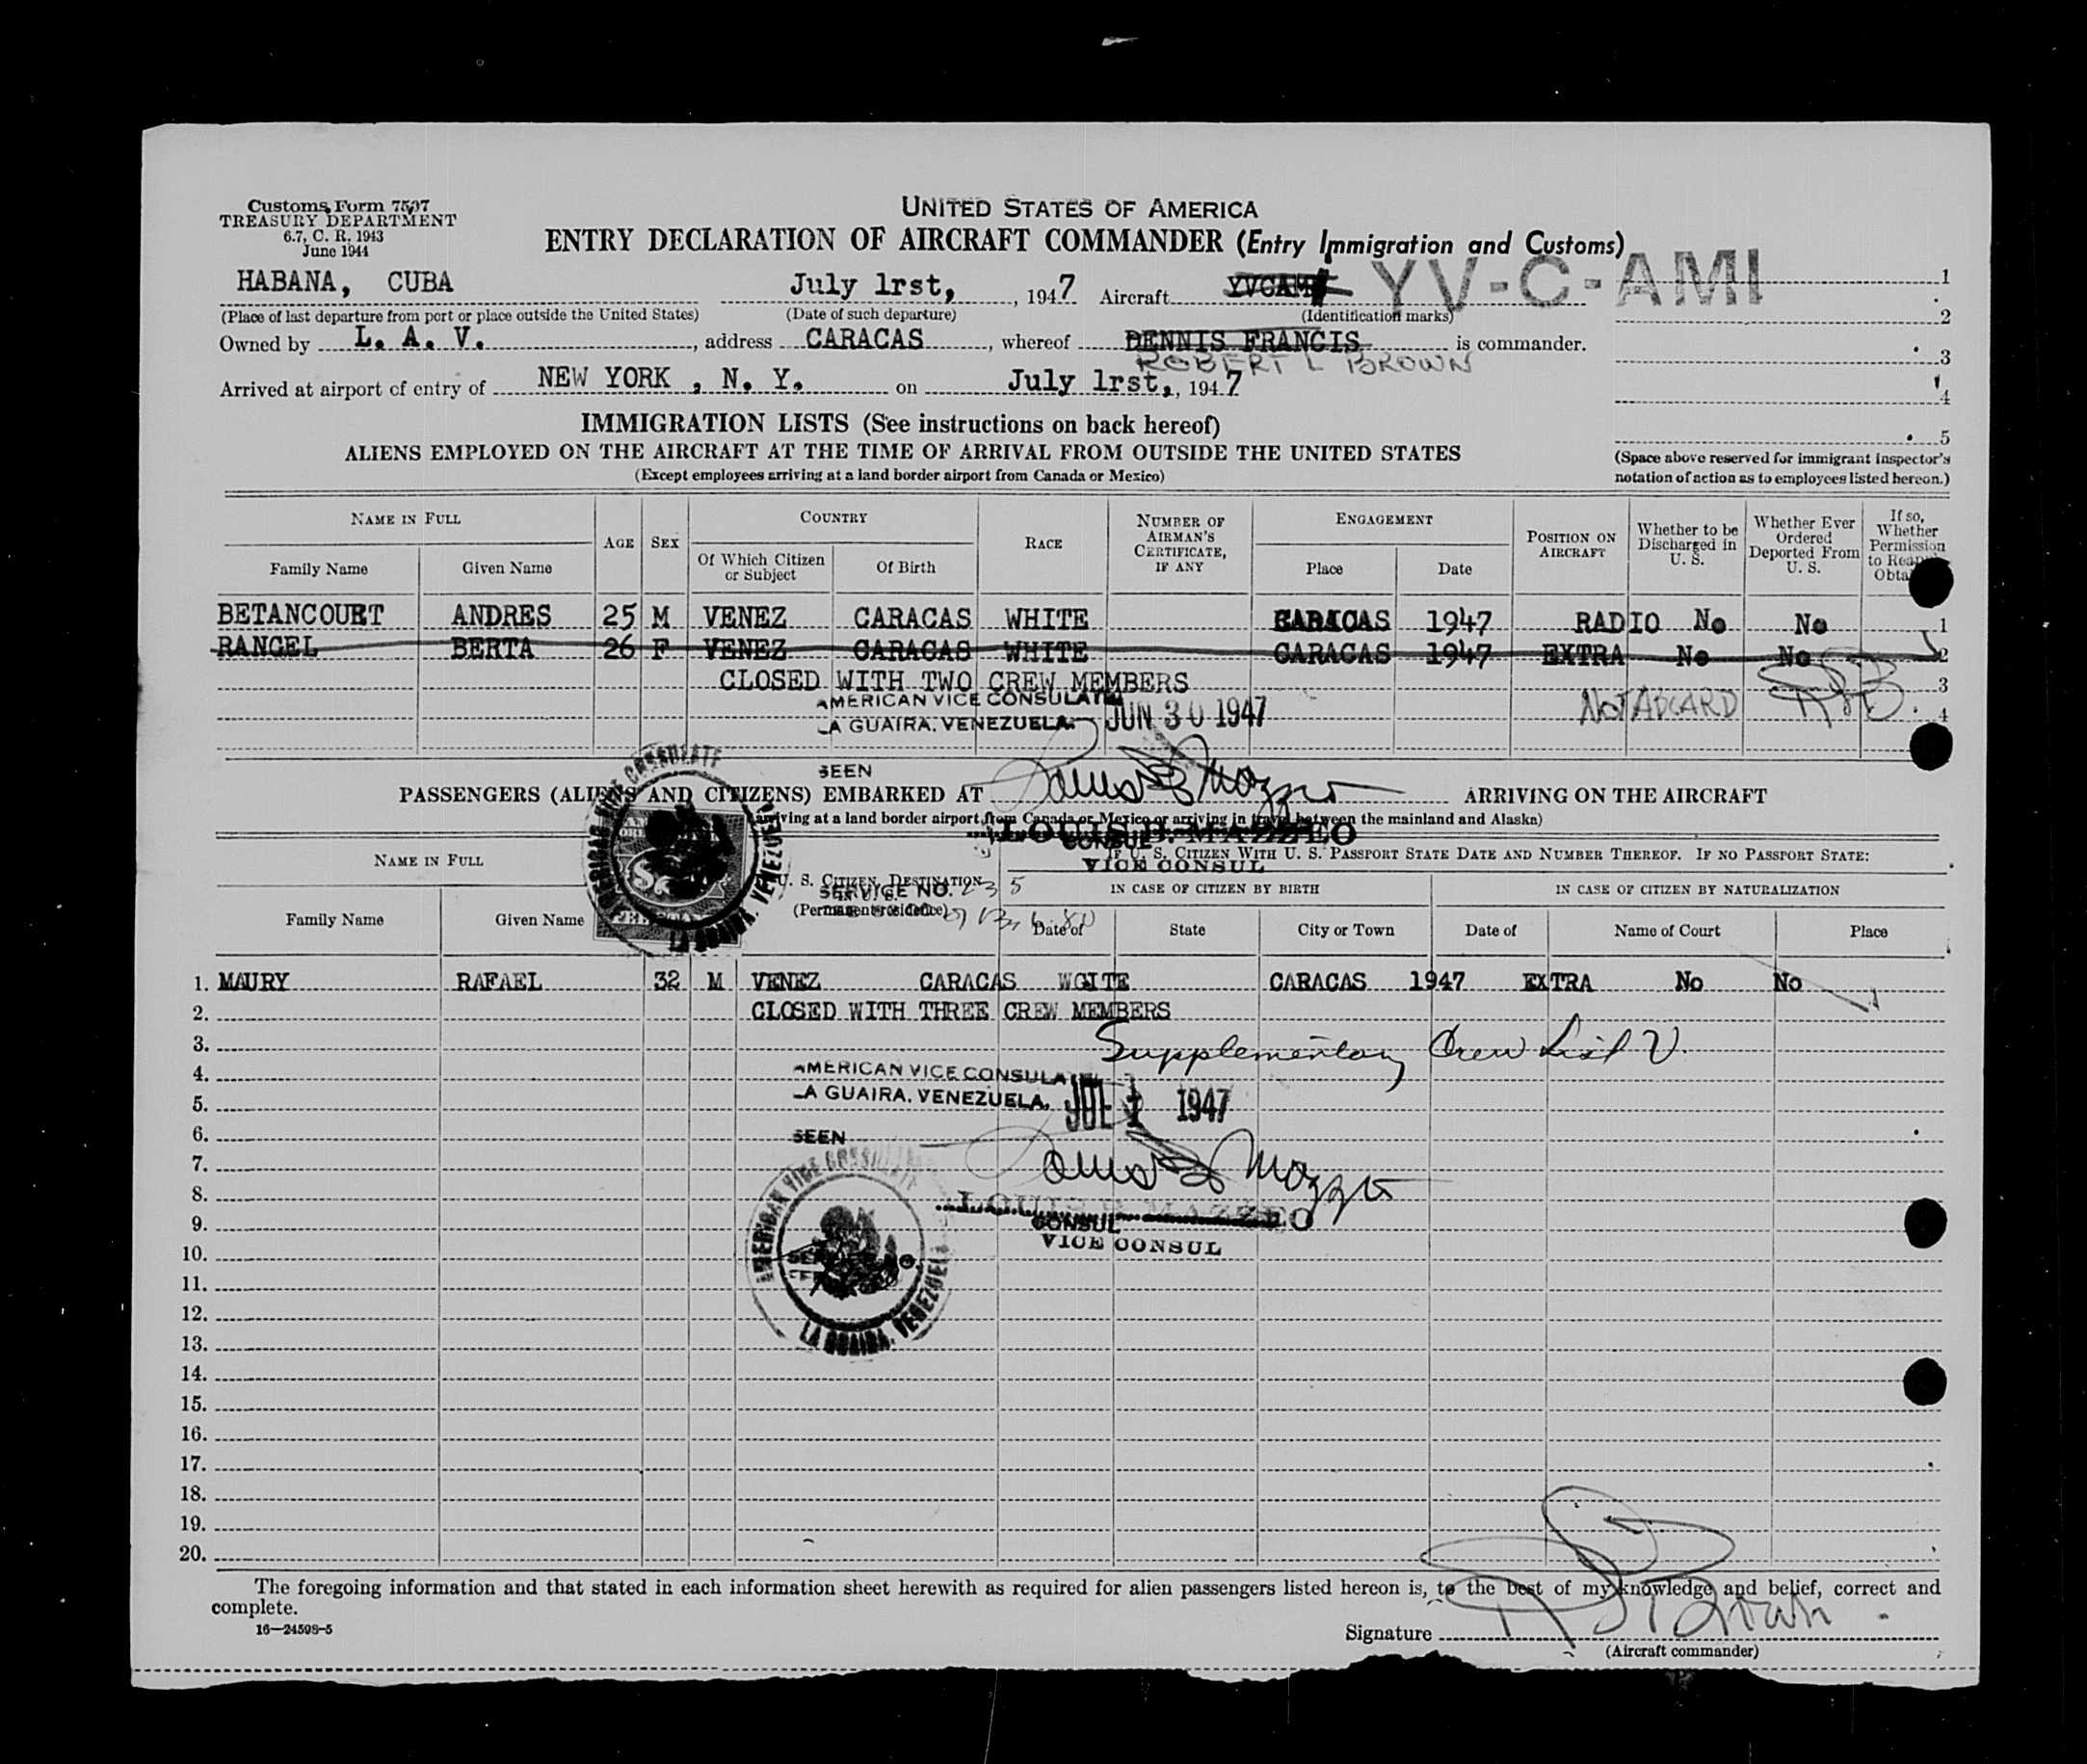 Customs Form 7507
TREASURY DEPARTMENT
6.7, C. R. 1943
June 1944
UNITED STATES OF AMERICA
ENTRY DECLARATION OF AIRCRAFT COMMANDER (Entry Immigration and Customs)
HABANA, CUBA July 1rst, , 1947 Aircraft YVCAM YV-C-AMI 1
(Place of last departure from port or place outside the United States) (Date of such departure) (Identification marks) 2
Owned by L. A. V. , address CARACAS , whereof DENNIS FRANCIS is commander.
ROBERT L BROWN 3
Arrived at airport of entry of NEW YORK , N. Y. on July 1rst, , 1947 4
IMMIGRATION LISTS (See instructions on back hereof) 5
ALIENS EMPLOYED ON THE AIRCRAFT AT THE TIME OF ARRIVAL FROM OUTSIDE THE UNITED STATES
(Except employees arriving at a land border airport from Canada or Mexico)
(Space above reserved for immigrant inspector's
notation of action as to employees listed hereon.)
NAME IN FULL AGE SEX COUNTRY RACE NUMBER OF AIRMAN'S CERTIFICATE, IF ANY ENGAGEMENT POSITION ON AIRCRAFT Whether to be Discharged in U. S. Whether Ever Ordered Deported From U. S. If so, Whether Permission to
Family Name Given Name Of Which Citizen or Subject Of Birth Place Date
BETANCOURT ANDRES 25 M VENEZ CARACAS WHITE CARACAS 1947 RADIO No No 1
RANGEL BERTA 26 F VENEZ CARACAS WHITE CARACAS 1947 EXTRA No No 2
CLOSED WITH TWO CREW MEMBERS 3
AMERICAN VICE CONSULATE
LA GUAIRA, VENEZUELA. JUN 30 1947 NOT ABOARD RLB 4
SEEN
PASSENGERS (ALIENS AND CITIZENS) EMBARKED AT Louis B Mazzeo ARRIVING ON THE AIRCRAFT
arriving at a land border airport from Canada or Mexico or arriving in travel between the mainland and Alaska)
LOUIS B. MAZZEO
CONSUL
VICE CONSUL
AMERICAN VICE CONSULATE
LA GUAIRA, VENEZUELA
IF U. S. CITIZEN WITH U. S. PASSPORT STATE DATE AND NUMBER THEREOF. IF NO PASSPORT STATE:
NAME IN FULL U. S. CITIZEN, DESTINATION IN U. S. (Permanent residence) IN CASE OF CITIZEN BY BIRTH IN CASE OF CITIZEN BY NATURALIZATION
SERVICE NO. 235
Family Name Given Name Date of State City or Town Date of Name of Court Place
1. MAURY RAFAEL 32 M VENEZ CARACAS WGITE CARACAS 1947 EXTRA No No
2. CLOSED WITH THREE CREW MEMBERS
3. Supplementary Crew List V.
4. AMERICAN VICE CONSULATE
5. LA GUAIRA, VENEZUELA. JUL 1 1947
6. SEEN
7. Louis B Mazzeo
8. LOUIS B MAZZEO
9. CONSUL
VICE CONSUL
10.
AMERICAN VICE CONSULATE
LA GUAIRA, VENEZUELA
11.
12.
13.
14.
15.
16.
17.
18.
19.
20.
The foregoing information and that stated in each information sheet herewith as required for alien passengers listed hereon is, to the best of my knowledge and belief, correct and
complete.
16—24598-5
Signature R L Brown
(Aircraft commander)